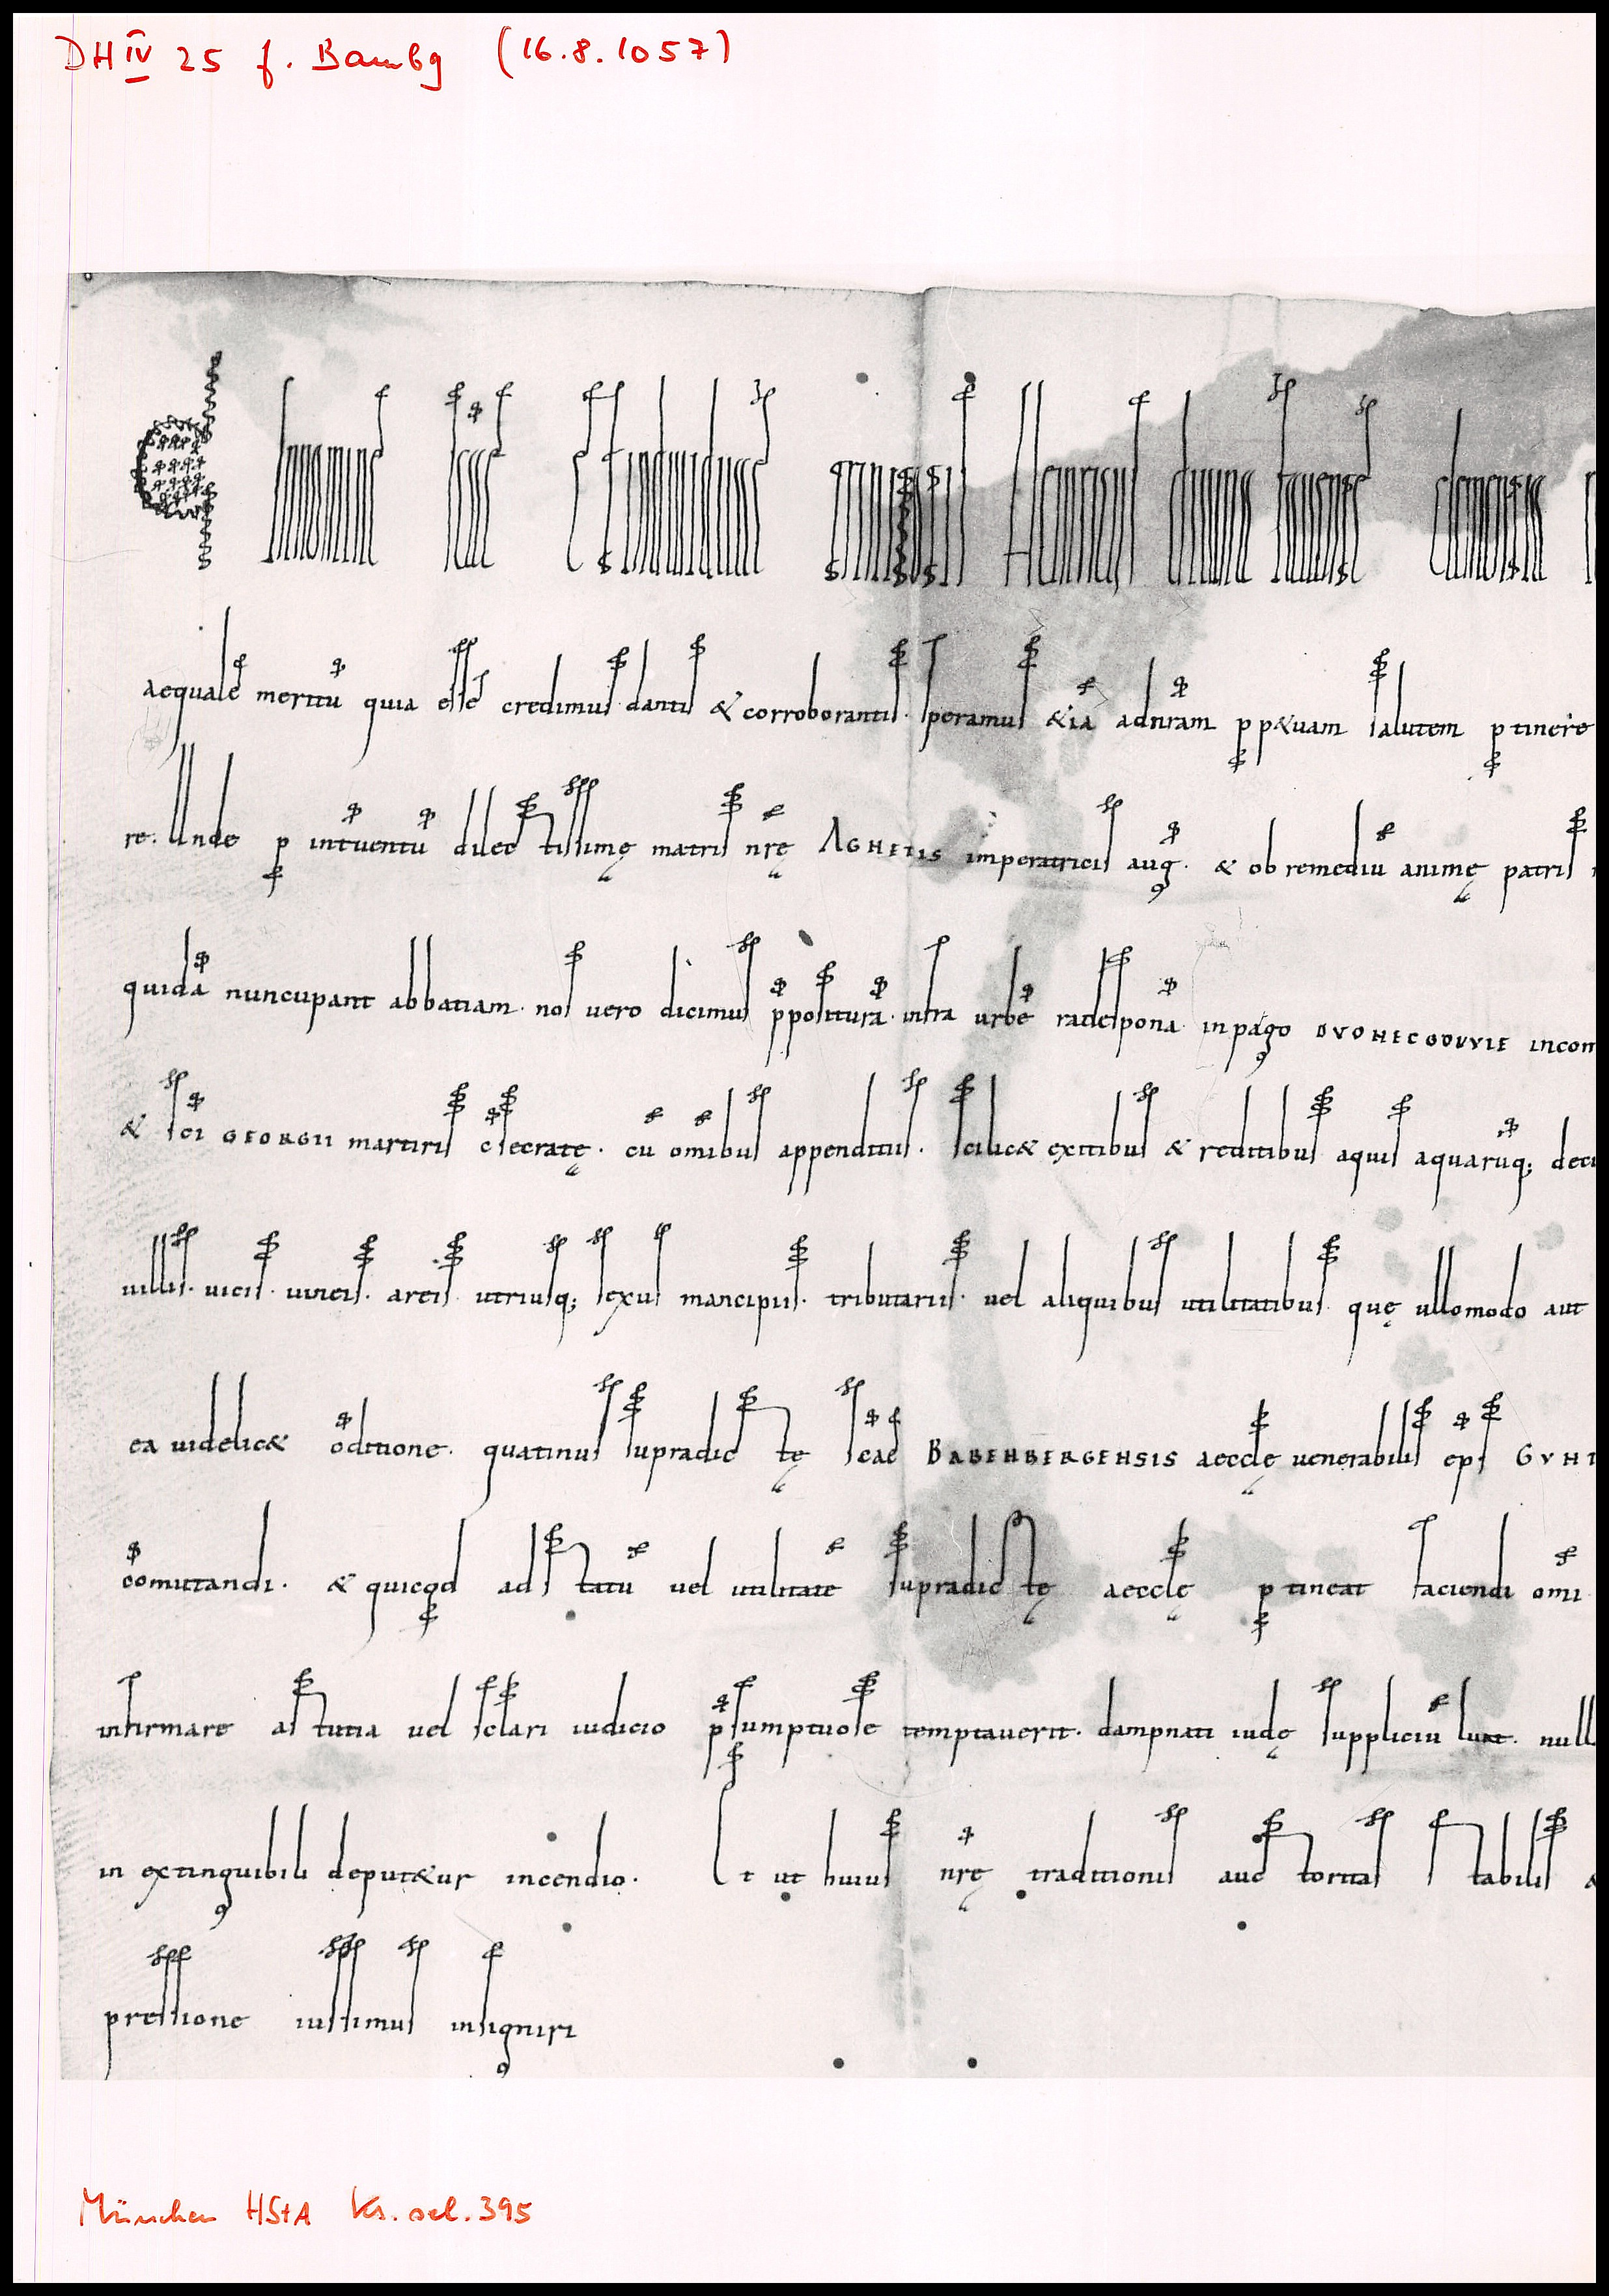 DH IV 25 f. Bambg (16.8.1057)
In nomine scę et indiuiduę trinitatis Heinricus diuina fauente clementia
aequale meritū quia esse credimus dantis & corroborantis. speramus &iā ad nrām p pp&uam salutem ptinere
re. Unde p intuentū dilectissimę matris nrę AGNETIS imperatricis aug. & ob remediū animę patris
quidā nuncupant abbatiam. nos uero dicimus ppositurā. infra urbē radespona in pago DVONECGOVVIE in com
& sci GEORGII martiris c̄secratę. cū omībus appenditiis. scilic& exitibus & reditibus aquis aquarūq; deci
uillis. uicis. uineis. areis. utriusq; sexus mancipiis. tributariis. uel aliquibus utilitatibus quę ullomodo aut
ea uidelic& c̄ditione. quatinus supradictę scae BABENBERGENSIS aecclę uenerabilis eps GVNT
cōmutandi. & quicqd ad statū uel utilitatē supradictę aecclę ptineat faciendi omi
infirmare astutia uel sclari iudicio psumptuose temptauerit. dampnati iudę suppliciū luat. null
in extinguibili deput&ur incendio. Et ut huius nrę traditionis auctoritas stabilis &
pressione iussimus insigniri
München HStA Ks. sel. 395